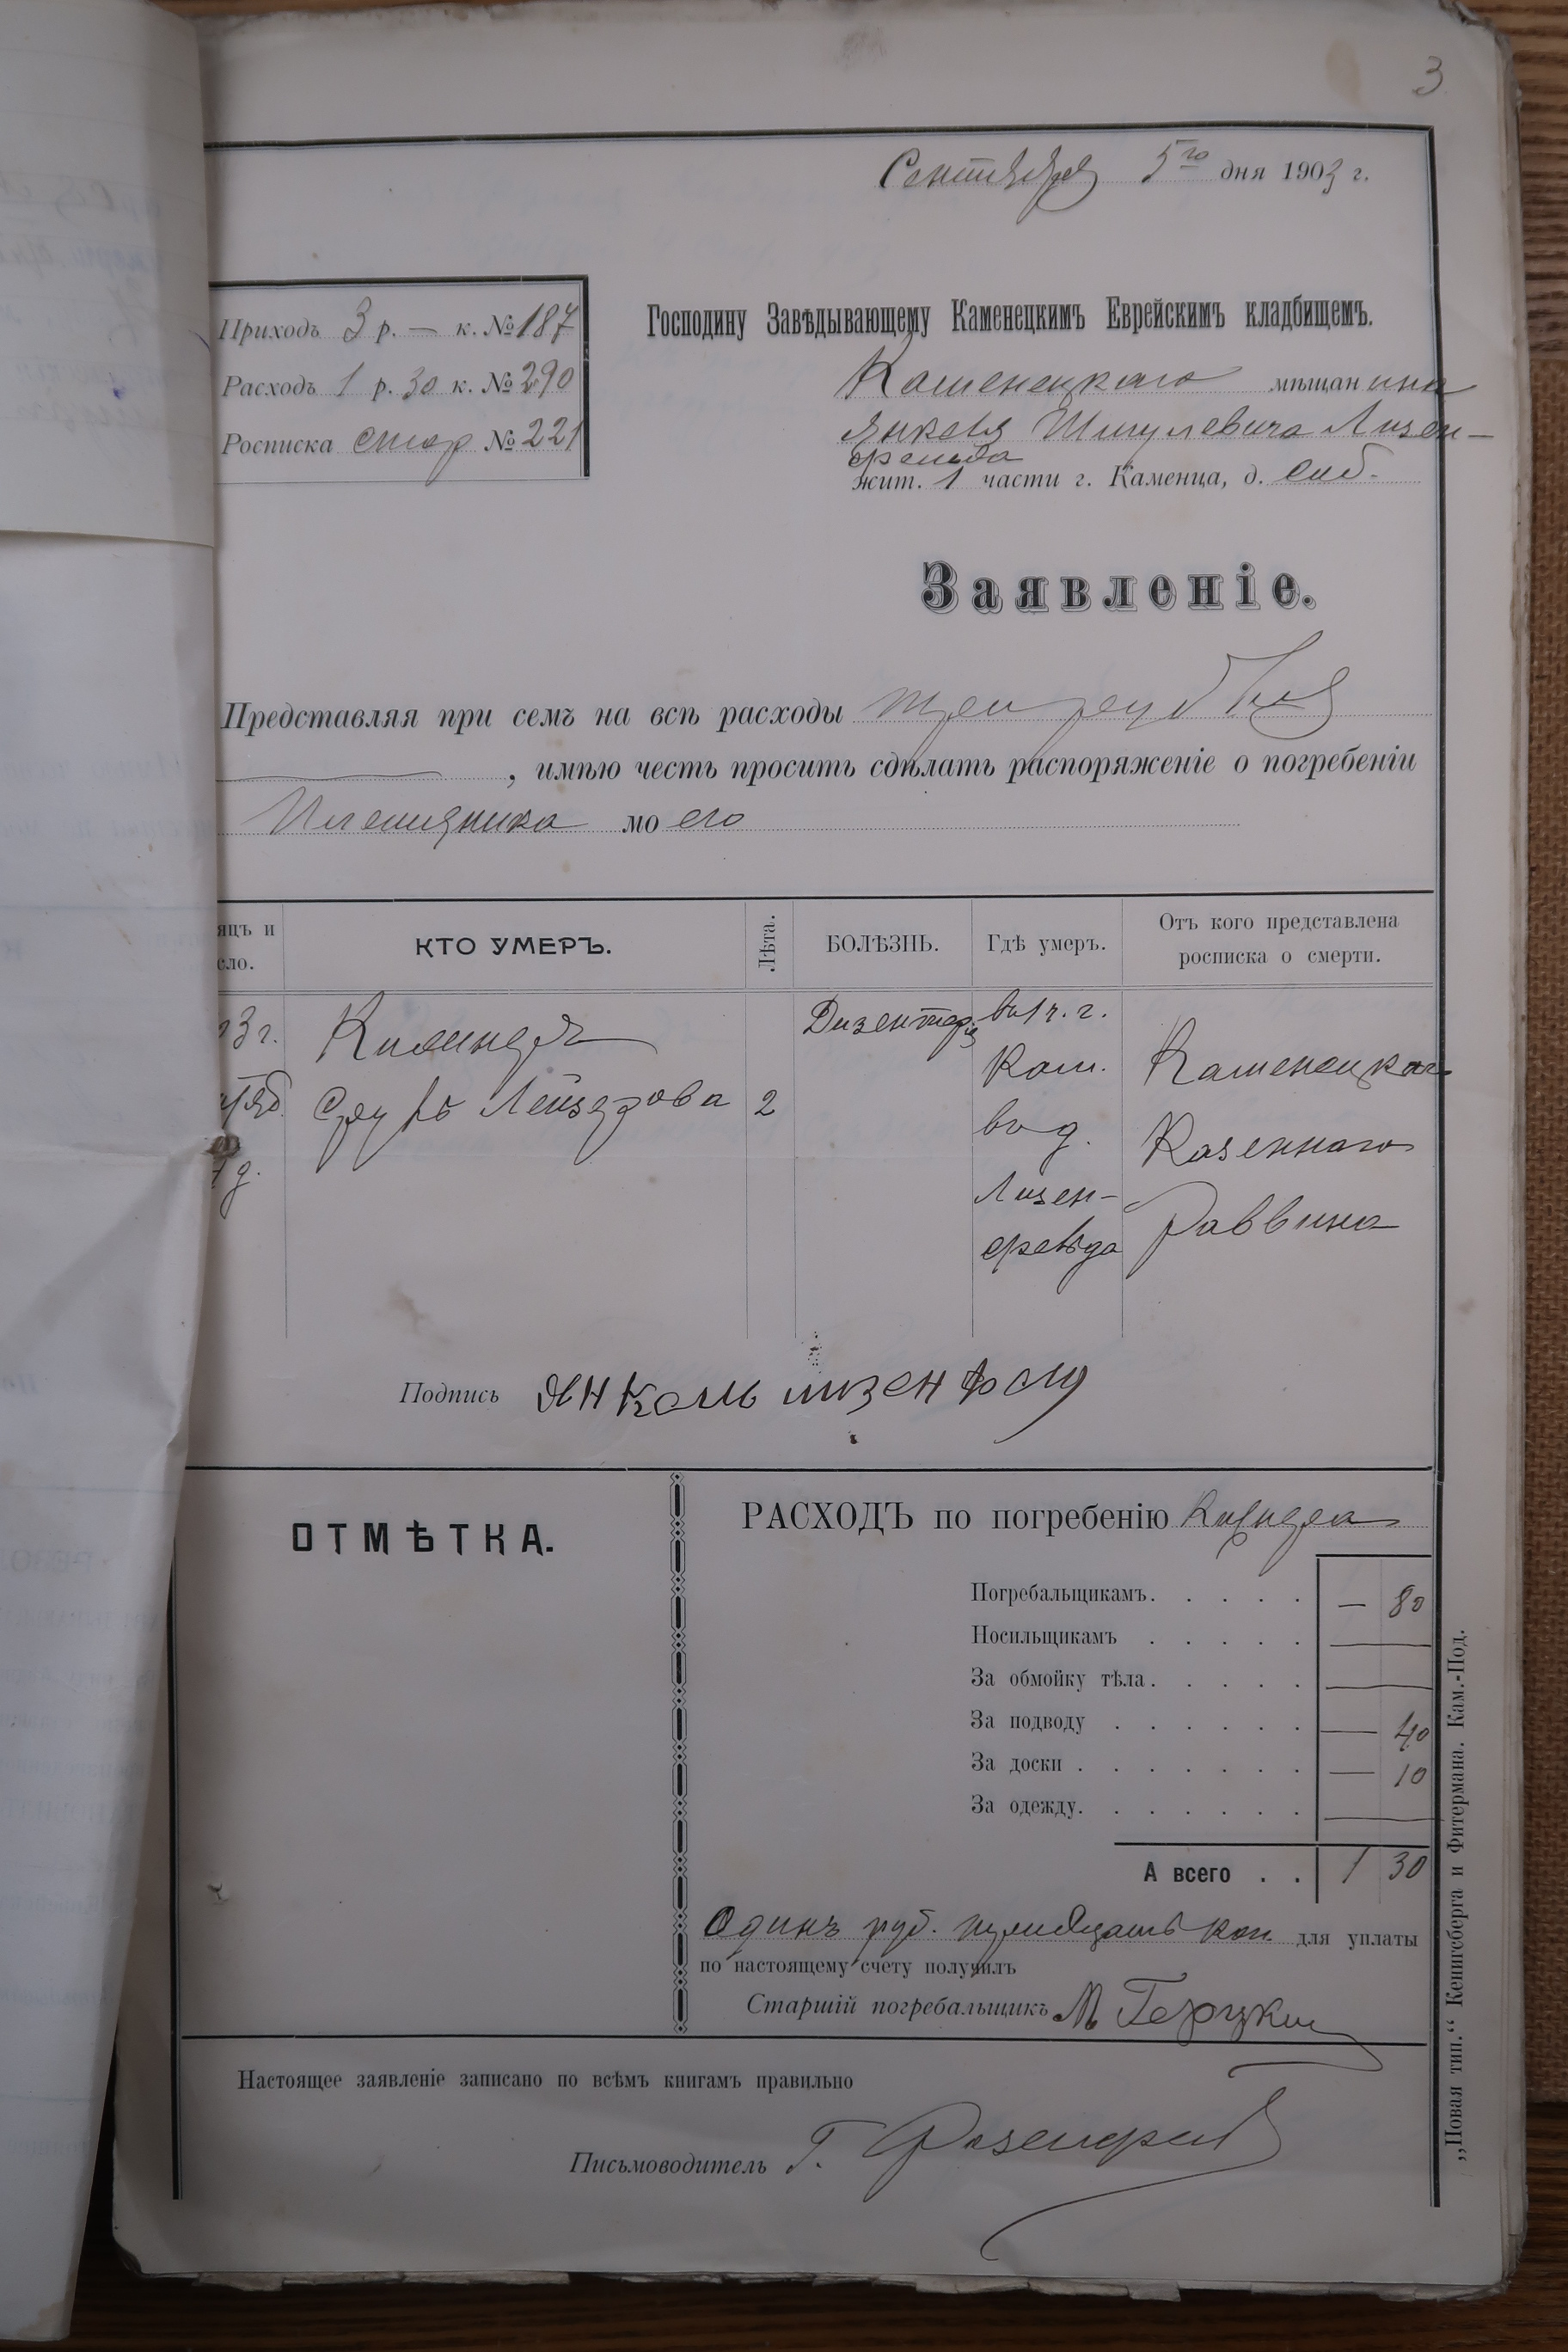 3
Сентября 5го дня 1903 г.
Приходъ 3 р. — к. № 187
Расходъ 1 р. 30 к. № 290
Росписка стар № 221
Господину Завѣдывающему Каменецкимъ Еврейскимъ кладбищемъ.
Каменецкаго мѣщанина
Янкеля Шмулевича Лизен-
фельда
жит. 1 части г. Каменца, д. соб.
Заявленіе.
Представляя при семъ на всѣ расходы три рубля
, имѣю честь просить сдѣлать распоряженіе о погребеніи
Племяника моего
яцъ и
сло.
КТО УМЕРЪ.
Лѣта.
БОЛѢЗНЬ.
Гдѣ умеръ.
Отъ кого представлена
росписка о смерти.
3 г.
д.
Сруль Лейзерова
2
Дизентерія
въ 1 ч. г.
Кам.
въ д.
Лизен-
фельда
Каменецкаго
Казеннаго
Раввина
Подпись Янкель лизенфелд
ОТМѢТКА.
РАСХОДЪ по погребенію
Погребальщикамъ. — 80
Носильщикамъ —
За обмойку тѣла. —
За подводу — 40
За доски — 10
За одежду. —
А всего . . 1 30
Одинъ руб. тридцать коп. для уплаты
по настоящему счету получилъ
Старшій погребальщикъ М
Настоящее заявленіе записано по всѣмъ книгамъ правильно
Письмоводитель Г.
„Новая тип.“ Кенигсберга и Фитермана. Кам.-Под.